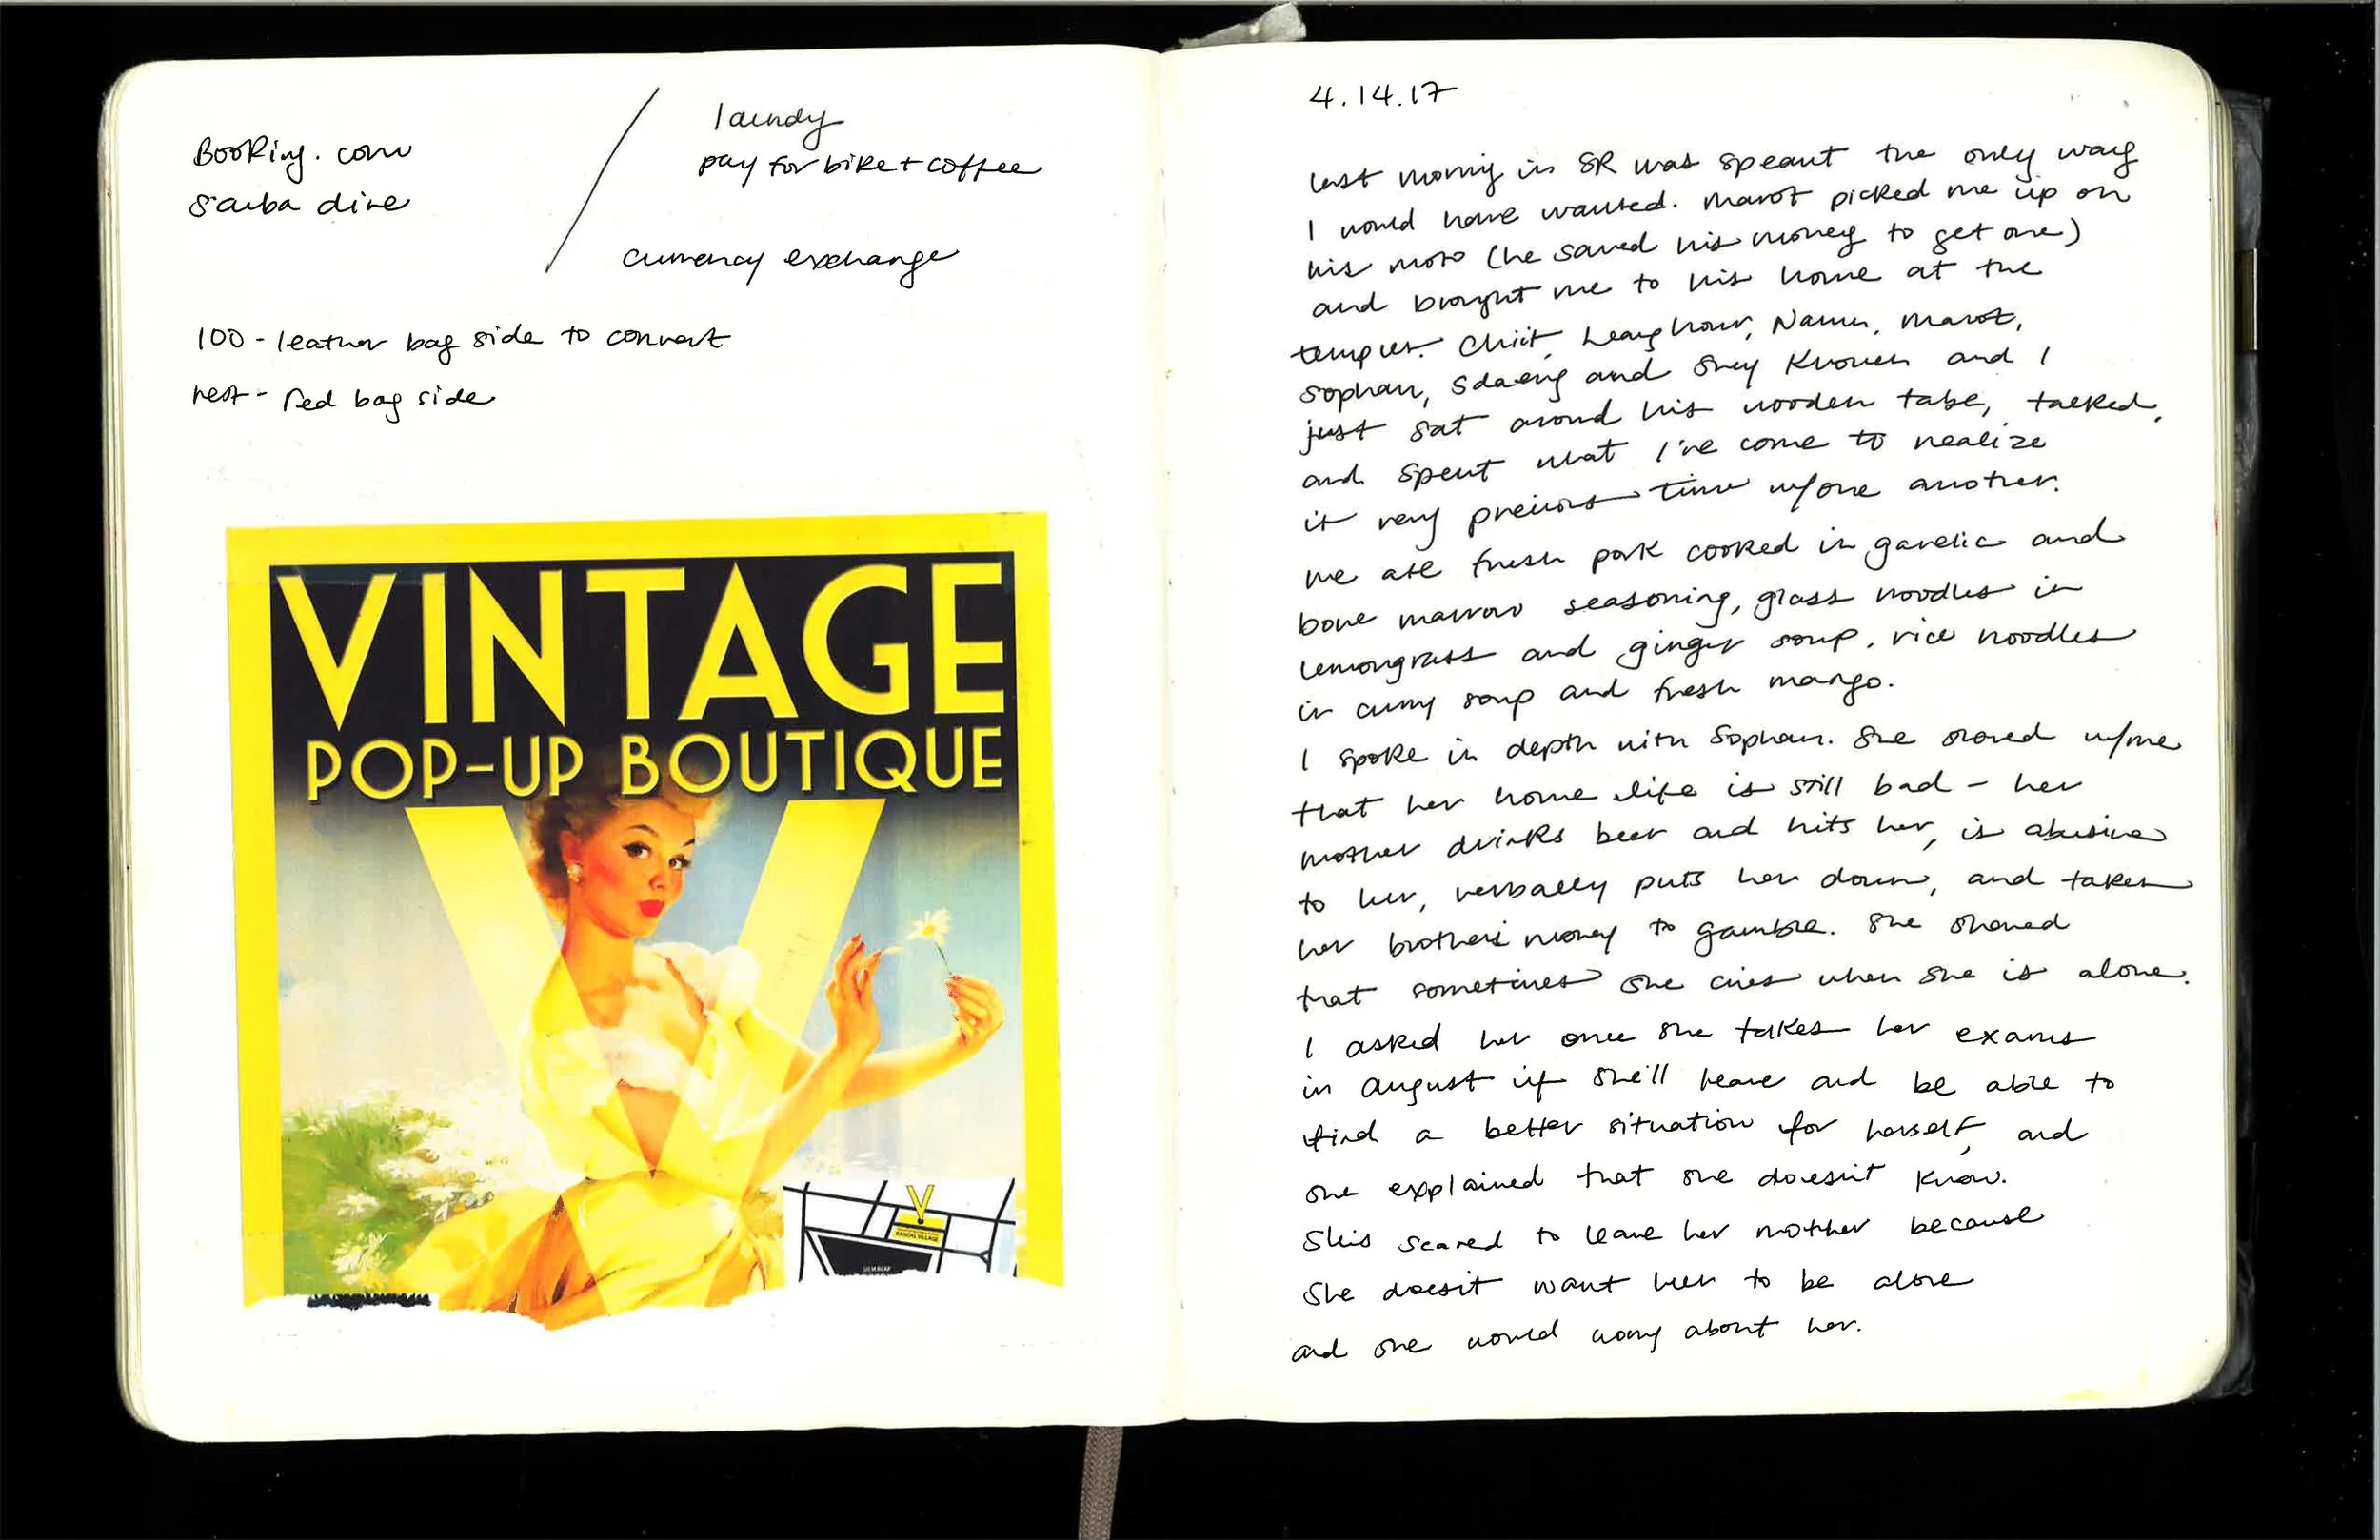 Booking.com
scuba dive
laundy
pay for bike + coffee
currency exchange
100 - leather bag side to convert
rest - red bag side
VINTAGE
POP-UP BOUTIQUE
V
KANDAL VILLAGE
SIEM REAP
4.14.17
last morning in SR was speant the only way
I would have wanted. Marot picked me up on
his moto (he saved his money to get one)
and brought me to his home at the
temples. Chiit, Leanghour, Namn, Marot,
Sophan, Sdaeng and Srey Knouch and I
just sat around his wooden table, talked,
and spent what I've come to realize
is very precious time w/one another.
We ate fresh pork cooked in garelic and
bone marrow seasoning, glass noodles in
lemongrass and ginger soup, rice noodles
in curry soup and fresh mango.
I spoke in depth with Sophan. She shared w/me
that her home life is still bad - her
mother drinks beer and hits her, is abusive
to her, verbally puts her down, and takes
her brother's money to gamble. She shared
that sometimes she cries when she is alone.
I asked her once she takes her exams
in august if she'll leave and be able to
find a better situation for herself, and
she explained that she doesn't know.
She's scared to leave her mother because
she doesn't want her to be alone
and she would worry about her.